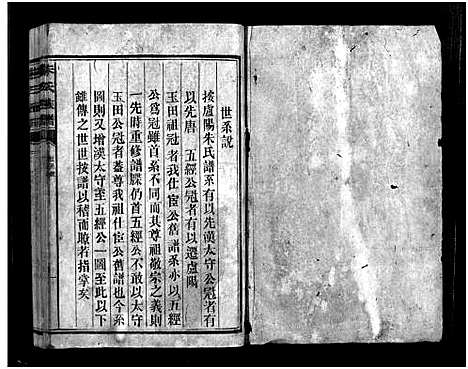 世系說
按盧陽朱氏譜系有以先漢太守公冠者有
以先唐　五經公冠者有以遷盧陽
玉田祖冠者我仕宦公舊譜系亦以五經
公爲冠雖首系不同而其尊祖敬宗之義則
一先時重修譜牒仍首五經公不敢以太守
玉田公冠者蓋尊我祖仕宦公舊譜也今系
圖則又增漢太守至五經公一圖至此以下
雖傳之世世按譜以稽而瞭若指掌矣